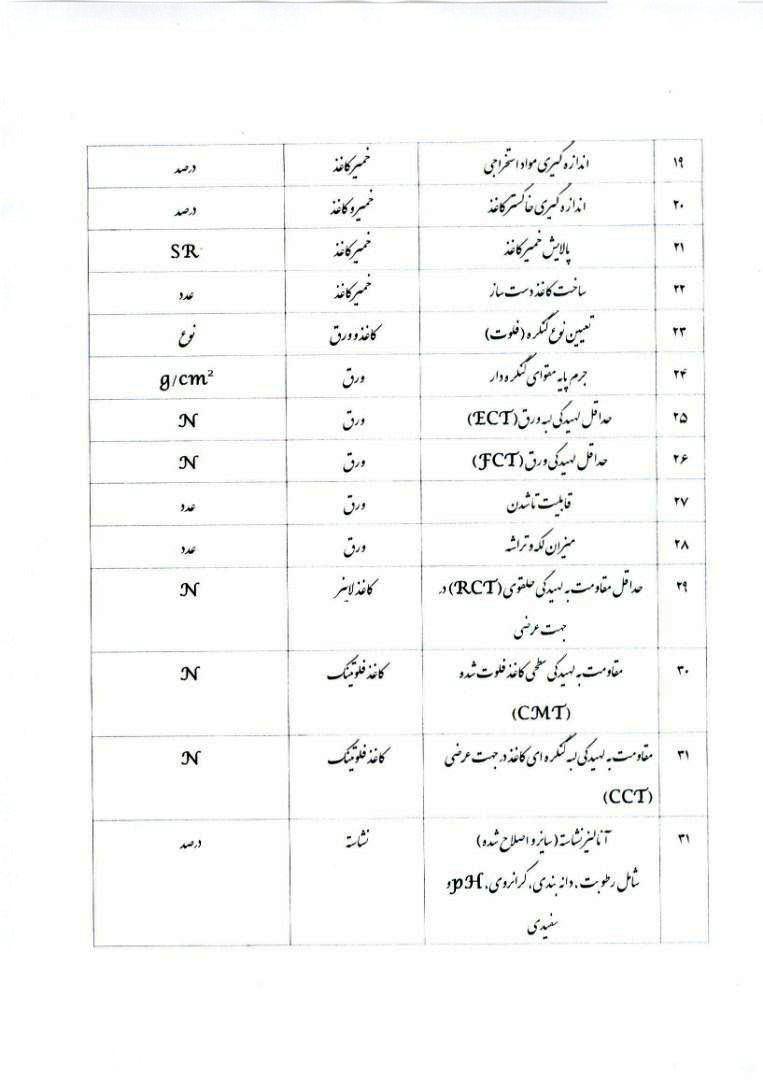 ۱۹ اندازه گیری مواد استخراجی خمیر کاغذ درصد
۲۰ اندازه گیری خاکستر کاغذ خمیر و کاغذ درصد
۲۱ پالایش خمیر کاغذ خمیر کاغذ SR
۲۲ ساخت کاغذ دست ساز خمیر کاغذ عدد
۲۳ تعیین نوع کنگره (فلوت) کاغذ و ورق نوع
۲۴ جرم پایه مقوای کنگره دار ورق g/cm²
۲۵ حداقل لهیدگی لبه ورق (ECT) ورق N
۲۶ حداقل لهیدگی ورق (FCT) ورق N
۲۷ قابلیت تا شدن ورق عدد
۲۸ میزان لکه و تراشه ورق عدد
۲۹ حداقل مقاومت به لهیدگی حلقوی (RCT) در کاغذ لاینر N
جهت عرضی
۳۰ مقاومت به لهیدگی سطحی کاغذ فلوت شده کاغذ فلوتینگ N
(CMT)
۳۱ مقاومت به لهیدگی لبه کنگره ای کاغذ در جهت عرضی کاغذ فلوتینگ N
(CCT)
۳۱ آنالیز نشاسته (سایز و اصلاح شده) نشاسته درصد
شامل رطوبت، دانه بندی، گرانروی، pH و
سفیدی